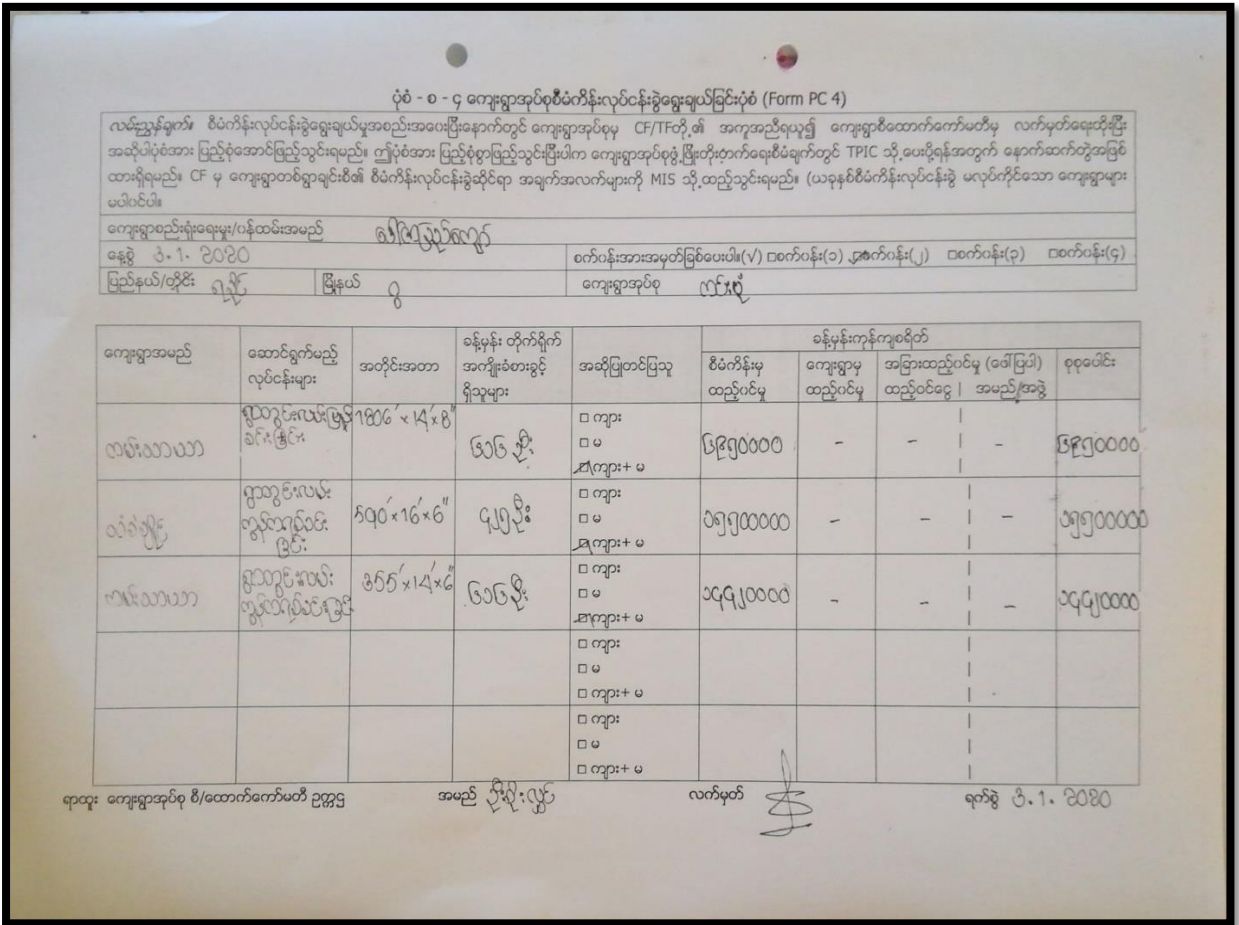 ပုံစံ - စ - ၄ ကျေးရွာအုပ်စုစီမံကိန်းလုပ်ငန်းခွဲရွေးချယ်ခြင်းပုံစံ (Form PC 4)
လမ်းညွှန်ချက်။ စီမံကိန်းလုပ်ငန်းခွဲရွေးချယ်မှုအစည်းအဝေးပြီးနောက်တွင် ကျေးရွာအုပ်စုမှ CF/TFတို့၏ အကူအညီရယူ၍ ကျေးရွာစီထောက်ကော်မတီမှ လက်မှတ်ရေးထိုးပြီး
အဆိုပါပုံစံအား ပြည့်စုံအောင်ဖြည့်သွင်းရမည်။ ဤပုံစံအား ပြည့်စုံစွာဖြည့်သွင်းပြီးပါက ကျေးရွာအုပ်စုဖွံ့ဖြိုးတိုးတက်ရေးစီမံချက်တွင် TPIC သို့ပေးပို့ရန်အတွက် နောက်ဆက်တွဲအဖြစ်
ထားရှိရမည်။ CF မှ ကျေးရွာတစ်ရွာချင်းစီ၏ စီမံကိန်းလုပ်ငန်းခွဲဆိုင်ရာ အချက်အလက်များကို MIS သို့ထည့်သွင်းရမည်။ (ယခုနှစ်စီမံကိန်းလုပ်ငန်းခွဲ မလုပ်ကိုင်သော ကျေးရွာများ
မပါဝင်ပါ။
ကျေးရွာစည်းရုံးရေးမှူး/ဝန်ထမ်းအမည်
နေ့စွဲ 3.1. 2020 စက်ဝန်းအားအမှတ်ခြစ်ပေးပါ။(√) □စက်ဝန်း(၁) □စက်ဝန်း(၂) □စက်ဝန်း(၃) □စက်ဝန်း(၄)
ပြည်နယ်/တိုင်း ရခိုင် မြို့နယ် ဂွ ကျေးရွာအုပ်စု
ကျေးရွာအမည် ဆောင်ရွက်မည့် လုပ်ငန်းများ အတိုင်းအတာ ခန့်မှန်း တိုက်ရိုက် အကျိုးခံစားခွင့် ရှိသူများ အဆိုပြုတင်ပြသူ ခန့်မှန်းကုန်ကျစရိတ်
စီမံကိန်းမှ ထည့်ဝင်မှု ကျေးရွာမှ ထည့်ဝင်မှု အခြားထည့်ဝင်မှု (ဖေါ်ပြပါ) ထည့်ဝင်ငွေ | အမည်/အဖွဲ့ စုစုပေါင်း
ကမ်းသာယာ ရွာတွင်းလမ်းမြေသား ခင်းခြင်း 1806'×14'×8" ၆၁၆ ဦး □ ကျား □ မ □ ကျား+ မ ၆၉၅၀၀၀၀ - - - ၆၉၅၀၀၀၀
ရွာတွင်းလမ်း ကွန်ကရစ်ခင်းခြင်း 590'×16'×6" ၄၂၅ဦး □ ကျား □ မ □ ကျား+ မ ၁၅၅၀၀၀၀၀ - - - ၁၅၅၀၀၀၀၀
ကမ်းသာယာ ရွာတွင်းလမ်း ကွန်ကရစ်ခင်းခြင်း 355'×14'×6" ၆၁၆ ဦး □ ကျား □ မ □ ကျား+ မ ၁၄၄၂၀၀၀၀ - - - ၁၄၄၂၀၀၀၀
□ ကျား
□ မ
□ ကျား+ မ
□ ကျား
□ မ
□ ကျား+ မ
ရာထူး ကျေးရွာအုပ်စု စီ/ထောက်ကော်မတီ ဥက္ကဌ အမည် ဦးစိုးလွင် လက်မှတ် ရက်စွဲ 3.1. 2020